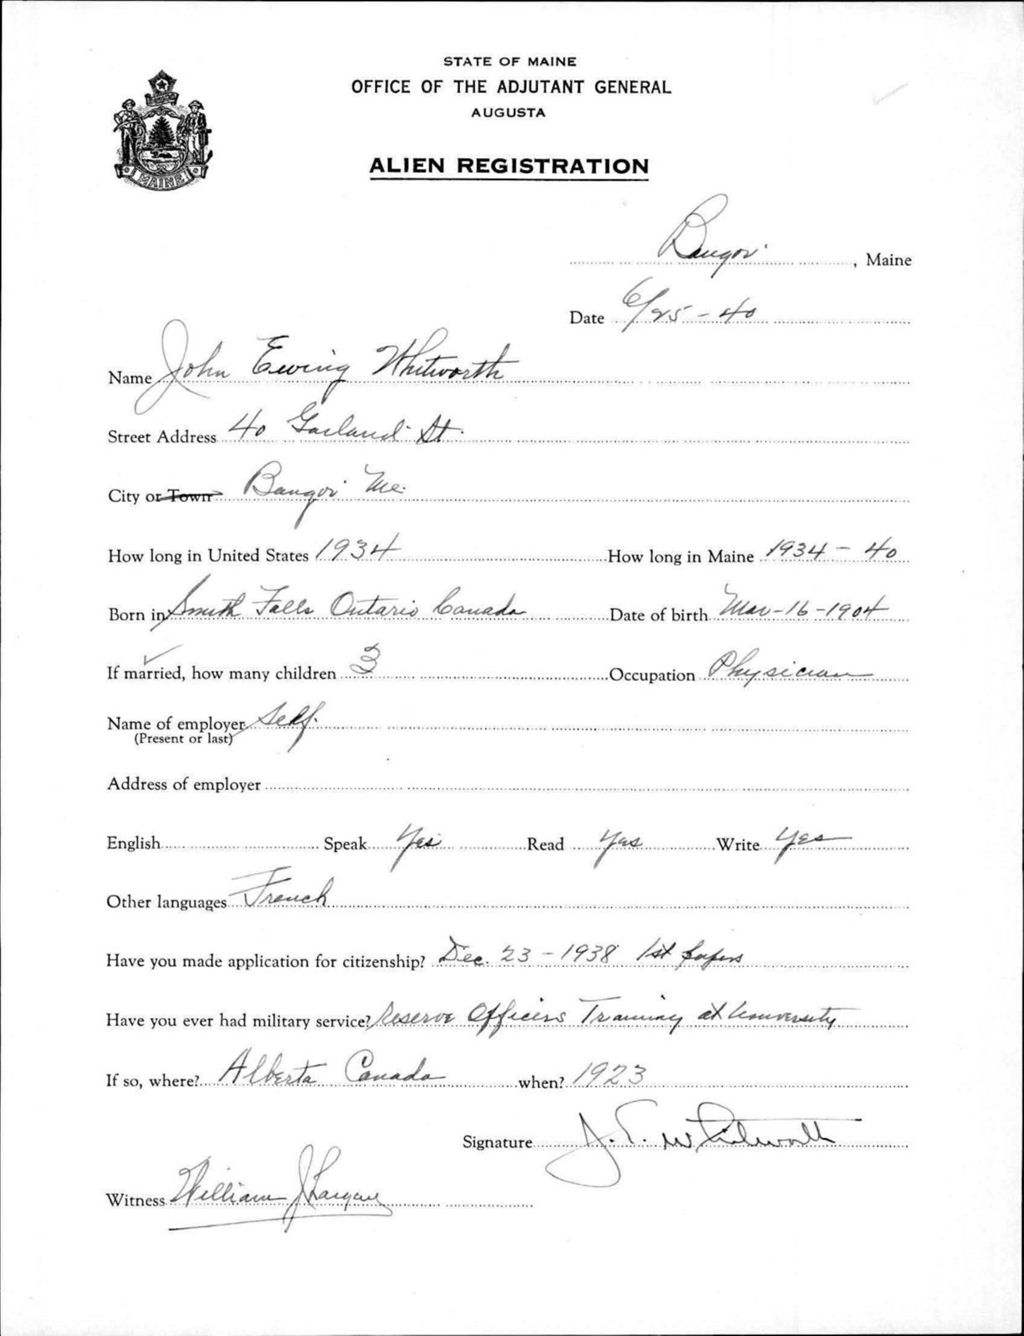 STATE OF MAINE
OFFICE OF THE ADJUTANT GENERAL
AUGUSTA
ALIEN REGISTRATION
MAINE
Bangor, Maine
Date 6/25-40
Name John Ewing Whitworth
Street Address 40 Garland St.
City or Town Bangor Me.
How long in United States 1934 How long in Maine 1934-40
Born in Smith Falls Ontario Canada Date of birth Mar-16-1904
If married, how many children 3 Occupation Physician
Name of employer Self.
(Present or last)
Address of employer
English Speak Yes Read Yes Write Yes
Other languages French
Have you made application for citizenship? Dec. 23-1938 1st papers
Have you ever had military service? Reserve Officers Training at University
If so, where? Alberta Canada when? 1923
Signature J. E. Whitworth
Witness William J